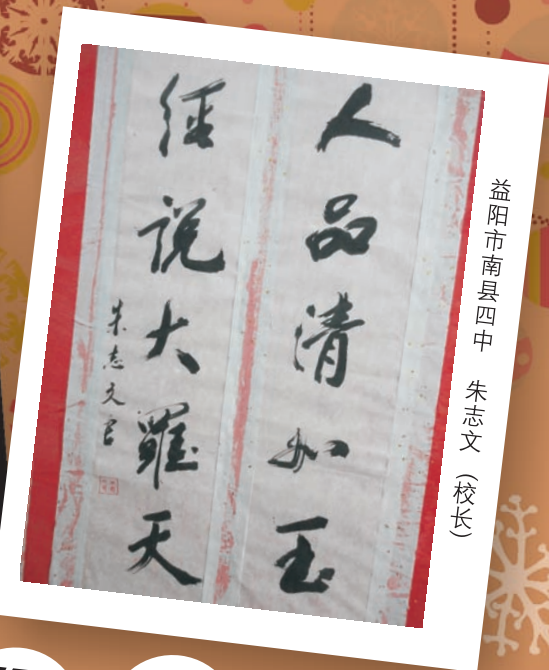 益阳市南县四中 朱志文 (校长)
人品清如玉
經說大羅天
朱志文书